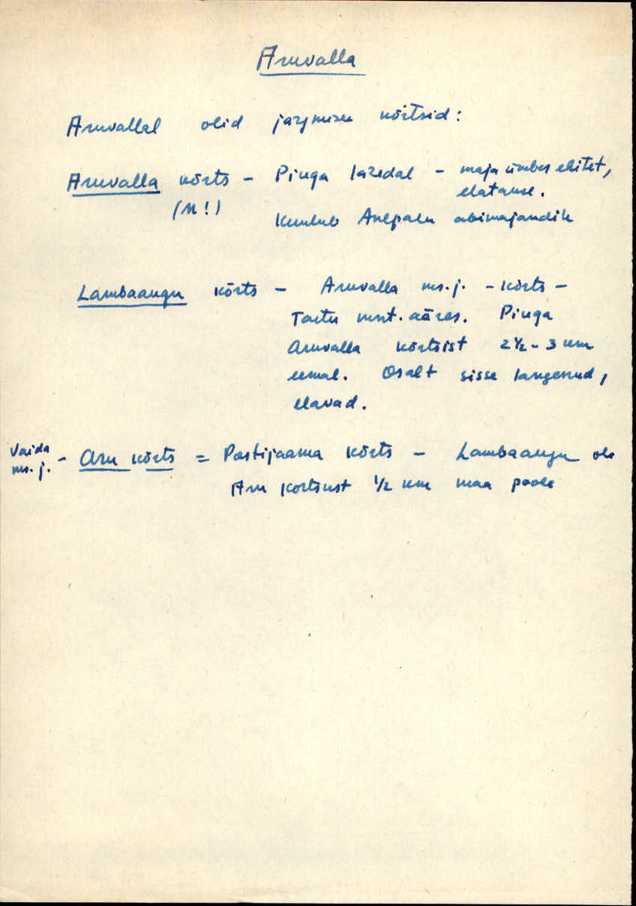 Aruvalla
Aruvallal olid järgmised kõrtsid:
Aruvalla kõrts - Piuga lähedal - maja ümber ehitet,
(M!) elatakse.
Kuulub abimajandik
Lambaaugu kõrts - Aruvalla ms.j. - kõrts -
Tartu mnt. ääres. Piuga
Aruvalla kõrtsist 2½-3 km
eemal. Osalt sisse langenud,
elavad.
Vaida
ms.j. - Aru kõrts = Postijaama kõrts - Lambaaugu ole
Aru kõrtsust ½ km maa poole